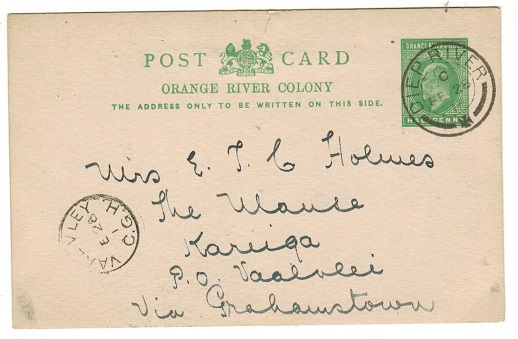 POST CARD
ORANGE RIVER COLONY
THE ADDRESS ONLY TO BE WRITTEN ON THIS SIDE.
DIEP RIVER
HALFPENNY
Mrs E. T. C Holmes
The Manse
Kariega
P.O. Vaalvlei
Via Grahamstown
C.G.H.